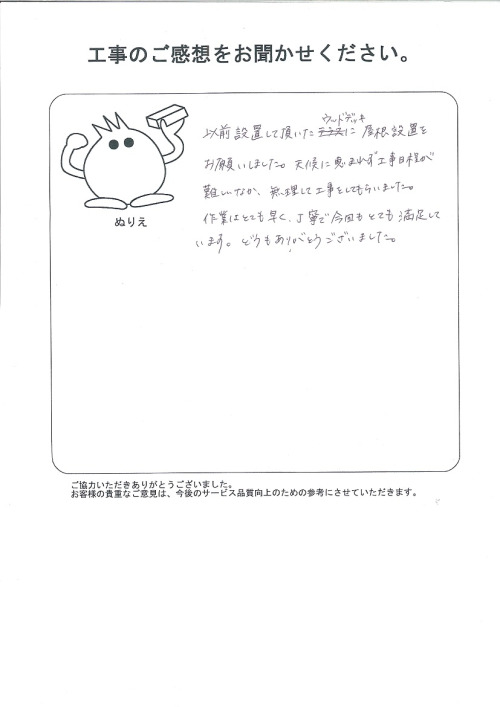 工事のご感想をお聞かせください。
ウッドデッキ
以前設置して頂いたテラスに屋根設置を
お願いしました。天候に恵まれず工事日程が
難しいなか、無理して工事をしてもらいました。
作業はとても早く、丁寧で今回もとても満足して
います。どうもありがとうございました。
ぬりえ
ご協力いただきありがとうございました。
お客様の貴重なご意見は、今後のサービス品質向上のための参考にさせていただきます。